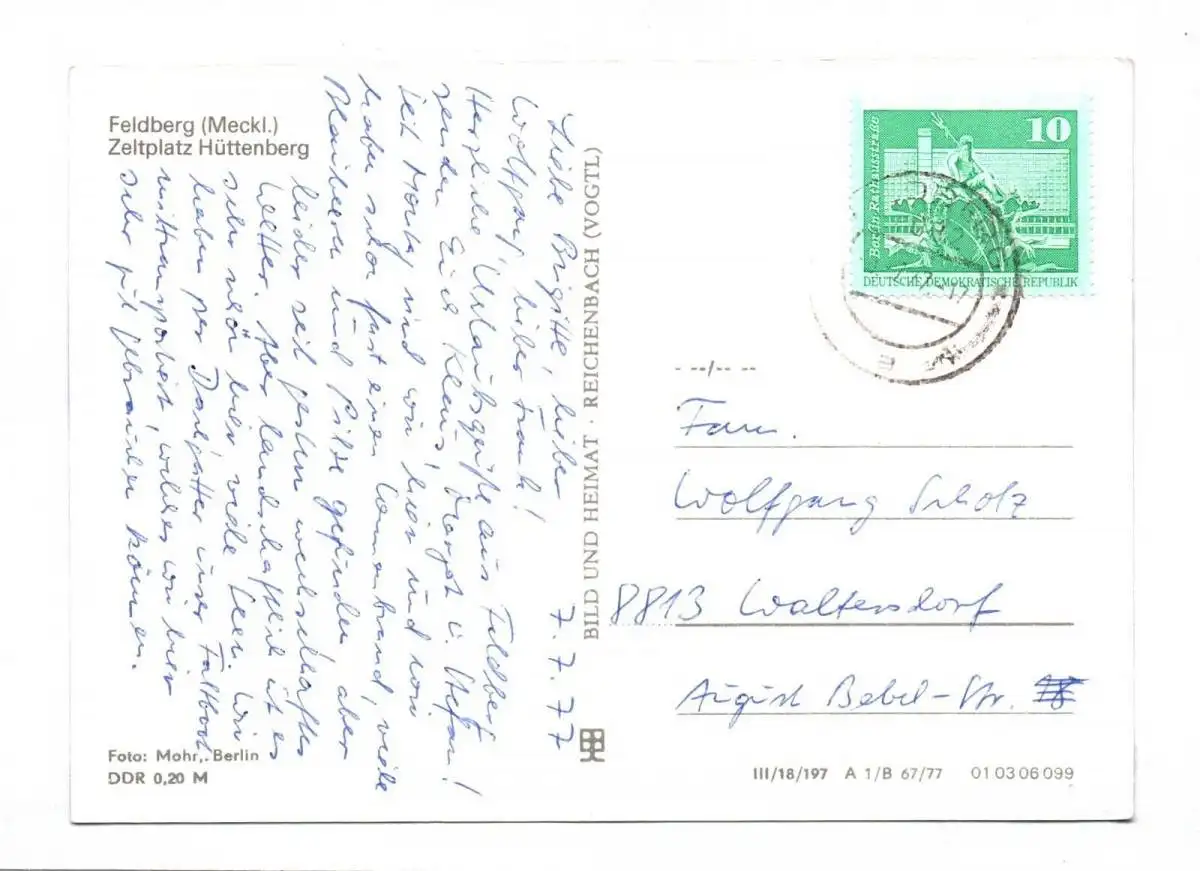 Feldberg (Meckl.)
Zeltplatz Hüttenberg
Liebe Brigitte, lieber 7.7.77
Wolfgang, lieber Frank!
Herzliche Urlaubsgrüße aus Feldberg
senden Eure Klaus, Margot u. Stefan!
Seit Montag sind wir hier und wir
haben schon fast einen Sonnenbrand, viele
Blaubeeren und Pilze gefunden aber
leider seit gestern wechselhaftes
Wetter. Aber landschaftlich ist es
sehr schön hier, viele Seen. Wir
haben per unser Faltboot
mittransportiert, welches wir hier
sehr gut gebrauchen können.
Foto: Mohr, Berlin
DDR 0,20 M
BILD UND HEIMAT · REICHENBACH (VOGTL)
10
Berlin Rathausstraße
DEUTSCHE DEMOKRATISCHE REPUBLIK
- --/-- --
Fam.
Wolfgang Scholz
8813 Waltersdorf
August Bebel-Str.
III/18/197 A 1/B 67/77 01 03 06 099